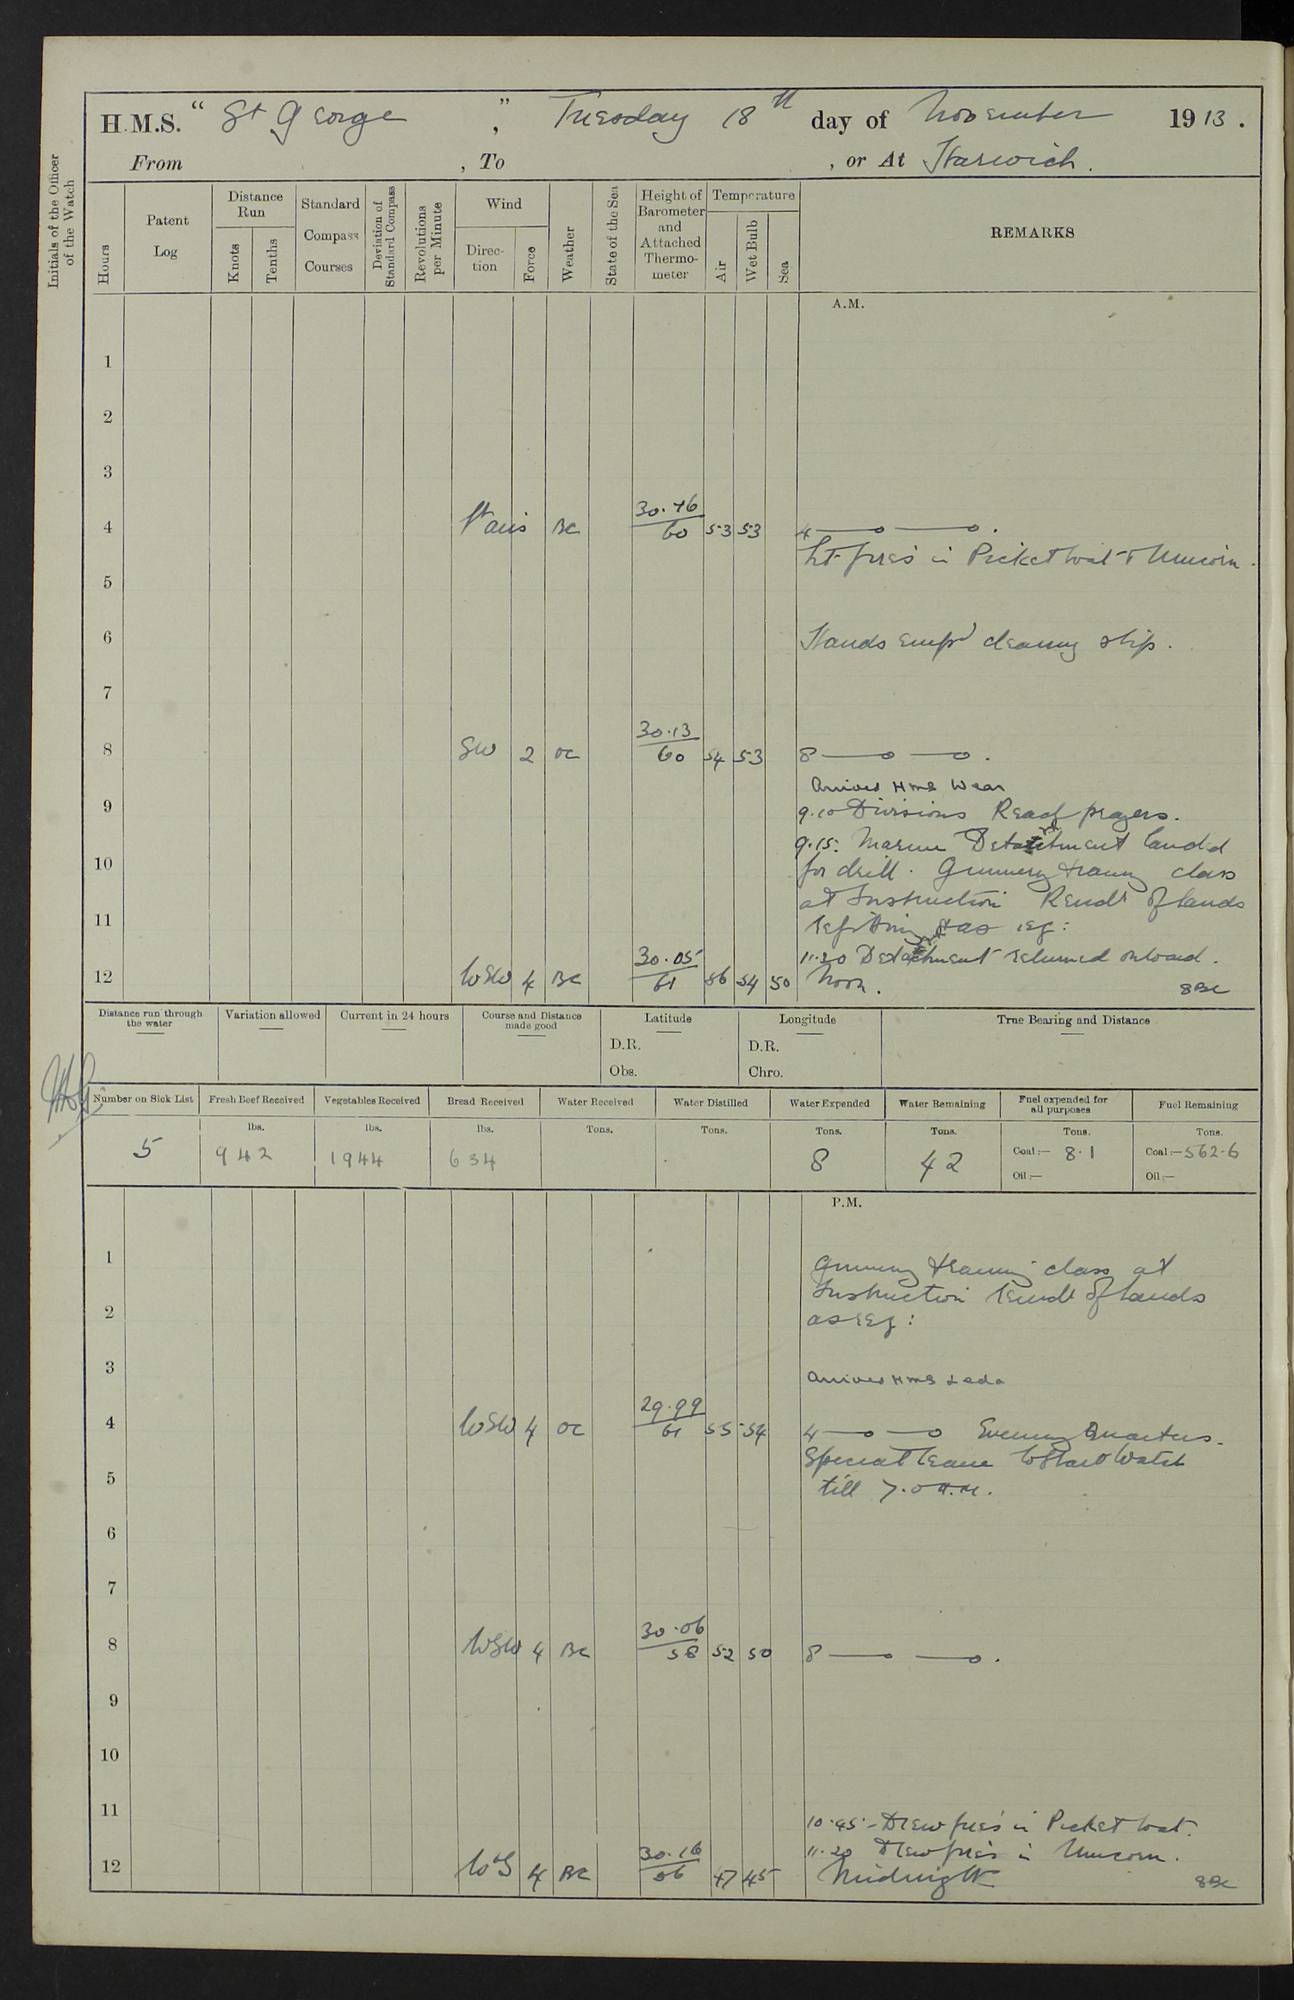 H.M.S. "St George", Tuesday 18th day of November 1913.
From , To , or At Harwich.
Initials of the Officer of the Watch
Hours
Patent Log
Distance Run
Knots
Tenths
Standard Compass Courses
Deviation of Standard Compass
Revolutions per Minute
Wind
Direction
Force
Weather
State of the Sea
Height of Barometer and Attached Thermometer
Temperature
Air
Wet Bulb
Sea
REMARKS
A.M.
1
2
3
4 BC 30.16 / 60 53 53 4
Lt fires in Picket boat & Unicorn.
5
6 Hands emp'd cleaning ship.
7
8 SW 2 OC 30.13 / 60 54 53 8
Arrived HMS Wear
9 9.10 Divisions Read prayers.
9.15. Marine Detatchment landed
10 for drill. Gunnery training class
at Instruction Remdr of hands
11 refitting & as req:
11.20 Detachment returned onboard.
12 WSW 4 BC 30.05 / 61 56 54 50 Noon.
Distance run through the water
Variation allowed
Current in 24 hours
Course and Distance made good
Latitude
D.R.
Obs.
Longitude
D.R.
Chro.
True Bearing and Distance
Number on Sick List
Fresh Beef Received
Vegetables Received
Bread Received
Water Received
Water Distilled
Water Expended
Water Remaining
Fuel expended for all purposes
Fuel Remaining
lbs. lbs. lbs. Tons. Tons. Tons. Tons. Tons. Tons.
5 942 1944 634 8 42 Coal:— 8.1 Coal:— 562.6
Oil:— Oil:—
P.M.
1 Gunnery training class at
Instruction Remdr of hands
2 as req:
3 Arrived HMS Leda
4 WSW 4 OC 29.99 / 61 55 54 4 Evening Quarters.
Special leave to Starb Watch
5 till 7.0 A.M.
6
7
8 WSW 4 BC 30.06 / 58 52 50 8
9
10
11 10.45 - Drew fires in Picket boat.
11.20 Drew fires in Unicorn.
12 4 BC 30.16 / 56 47 45 Midnight